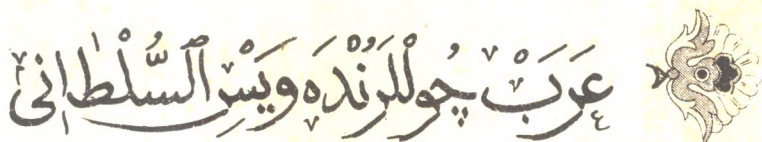 عَرَبْ چُولْلَرُنْدَه وَيْسِ اَلسُّلْطَانِى